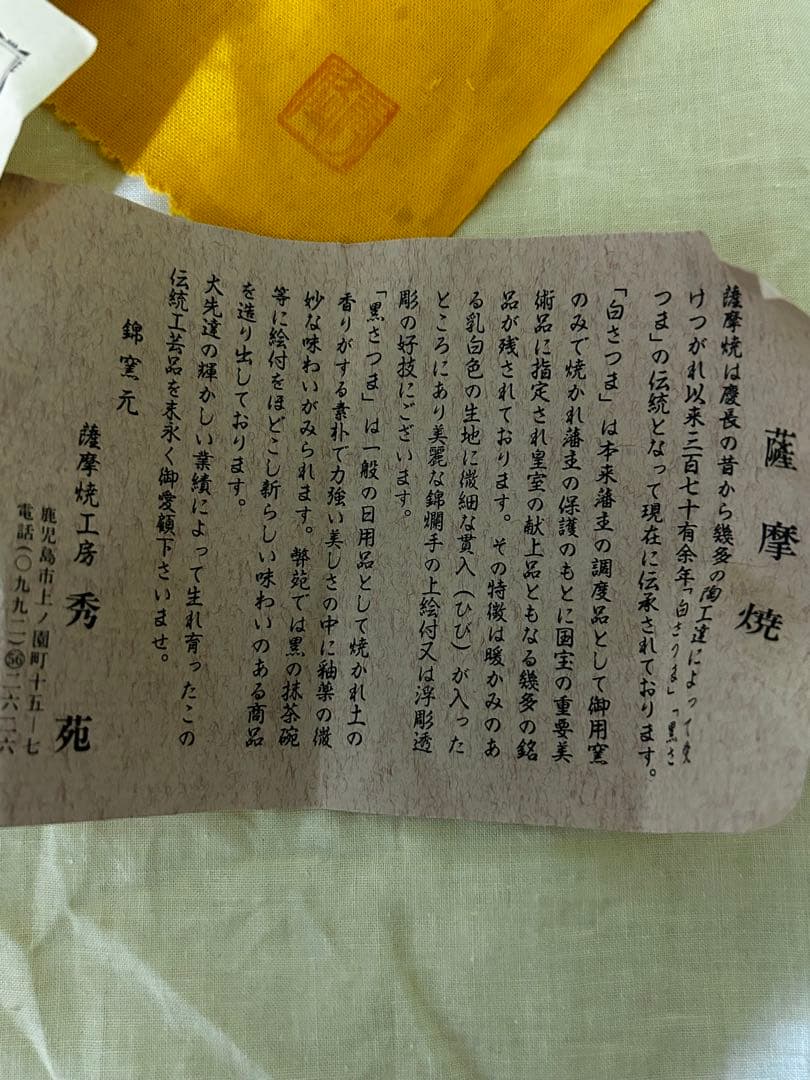 薩摩焼
薩摩焼は慶長の昔から幾多の陶工達によって受
けつがれ以来三百七十有余年「白さつま」「黒さ
つま」の伝統となって現在に伝承されております。
「白さつま」は本来藩主の調度品として御用窯
のみで焼かれ藩主の保護のもとに国宝の重要美
術品に指定され皇室の献上品ともなる幾多の銘
品が残されております。その特徴は暖かみのあ
る乳白色の生地に微細な貫入(ひび)が入った
ところにあり美麗な錦爛手の上絵付又は浮彫透
彫の好技にございます。
「黒さつま」は一般の日用品として焼かれ土の
香りがする素朴で力強い美しさの中に釉薬の微
妙な味わいがみられます。弊苑では黒の抹茶碗
等に絵付をほどこし新らしい味わいのある商品
を造り出しております。
大先達の輝かしい業績によって生れ育ったこの
伝統工芸品を末永く御愛顧下さいませ。
錦窯元
薩摩焼工房 秀苑
鹿児島市上ノ園町十五―七
電話(〇九九二)56二六二六